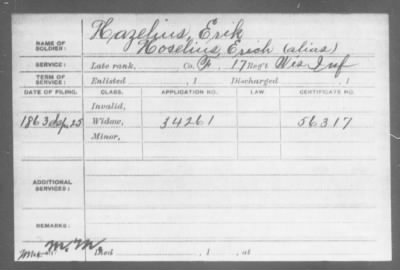 NAME OF SOLDIER: Hazelius, Erik
Hoselius, Erich (alias)
SERVICE: Late rank, Co. F, 17 Reg't Wis Inf
TERM OF SERVICE: Enlisted , 1 Discharged , 1
DATE OF FILING. CLASS. APPLICATION NO. LAW. CERTIFICATE NO.
Invalid,
1863 Sep. 25 Widow, 34261 56317
Minor,
ADDITIONAL SERVICES:
REMARKS:
Died , 1 , at